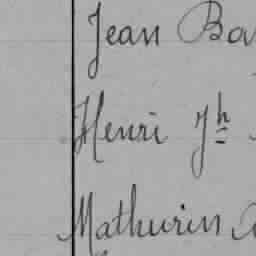 Jean Ba
Henri Jh
Mathurin